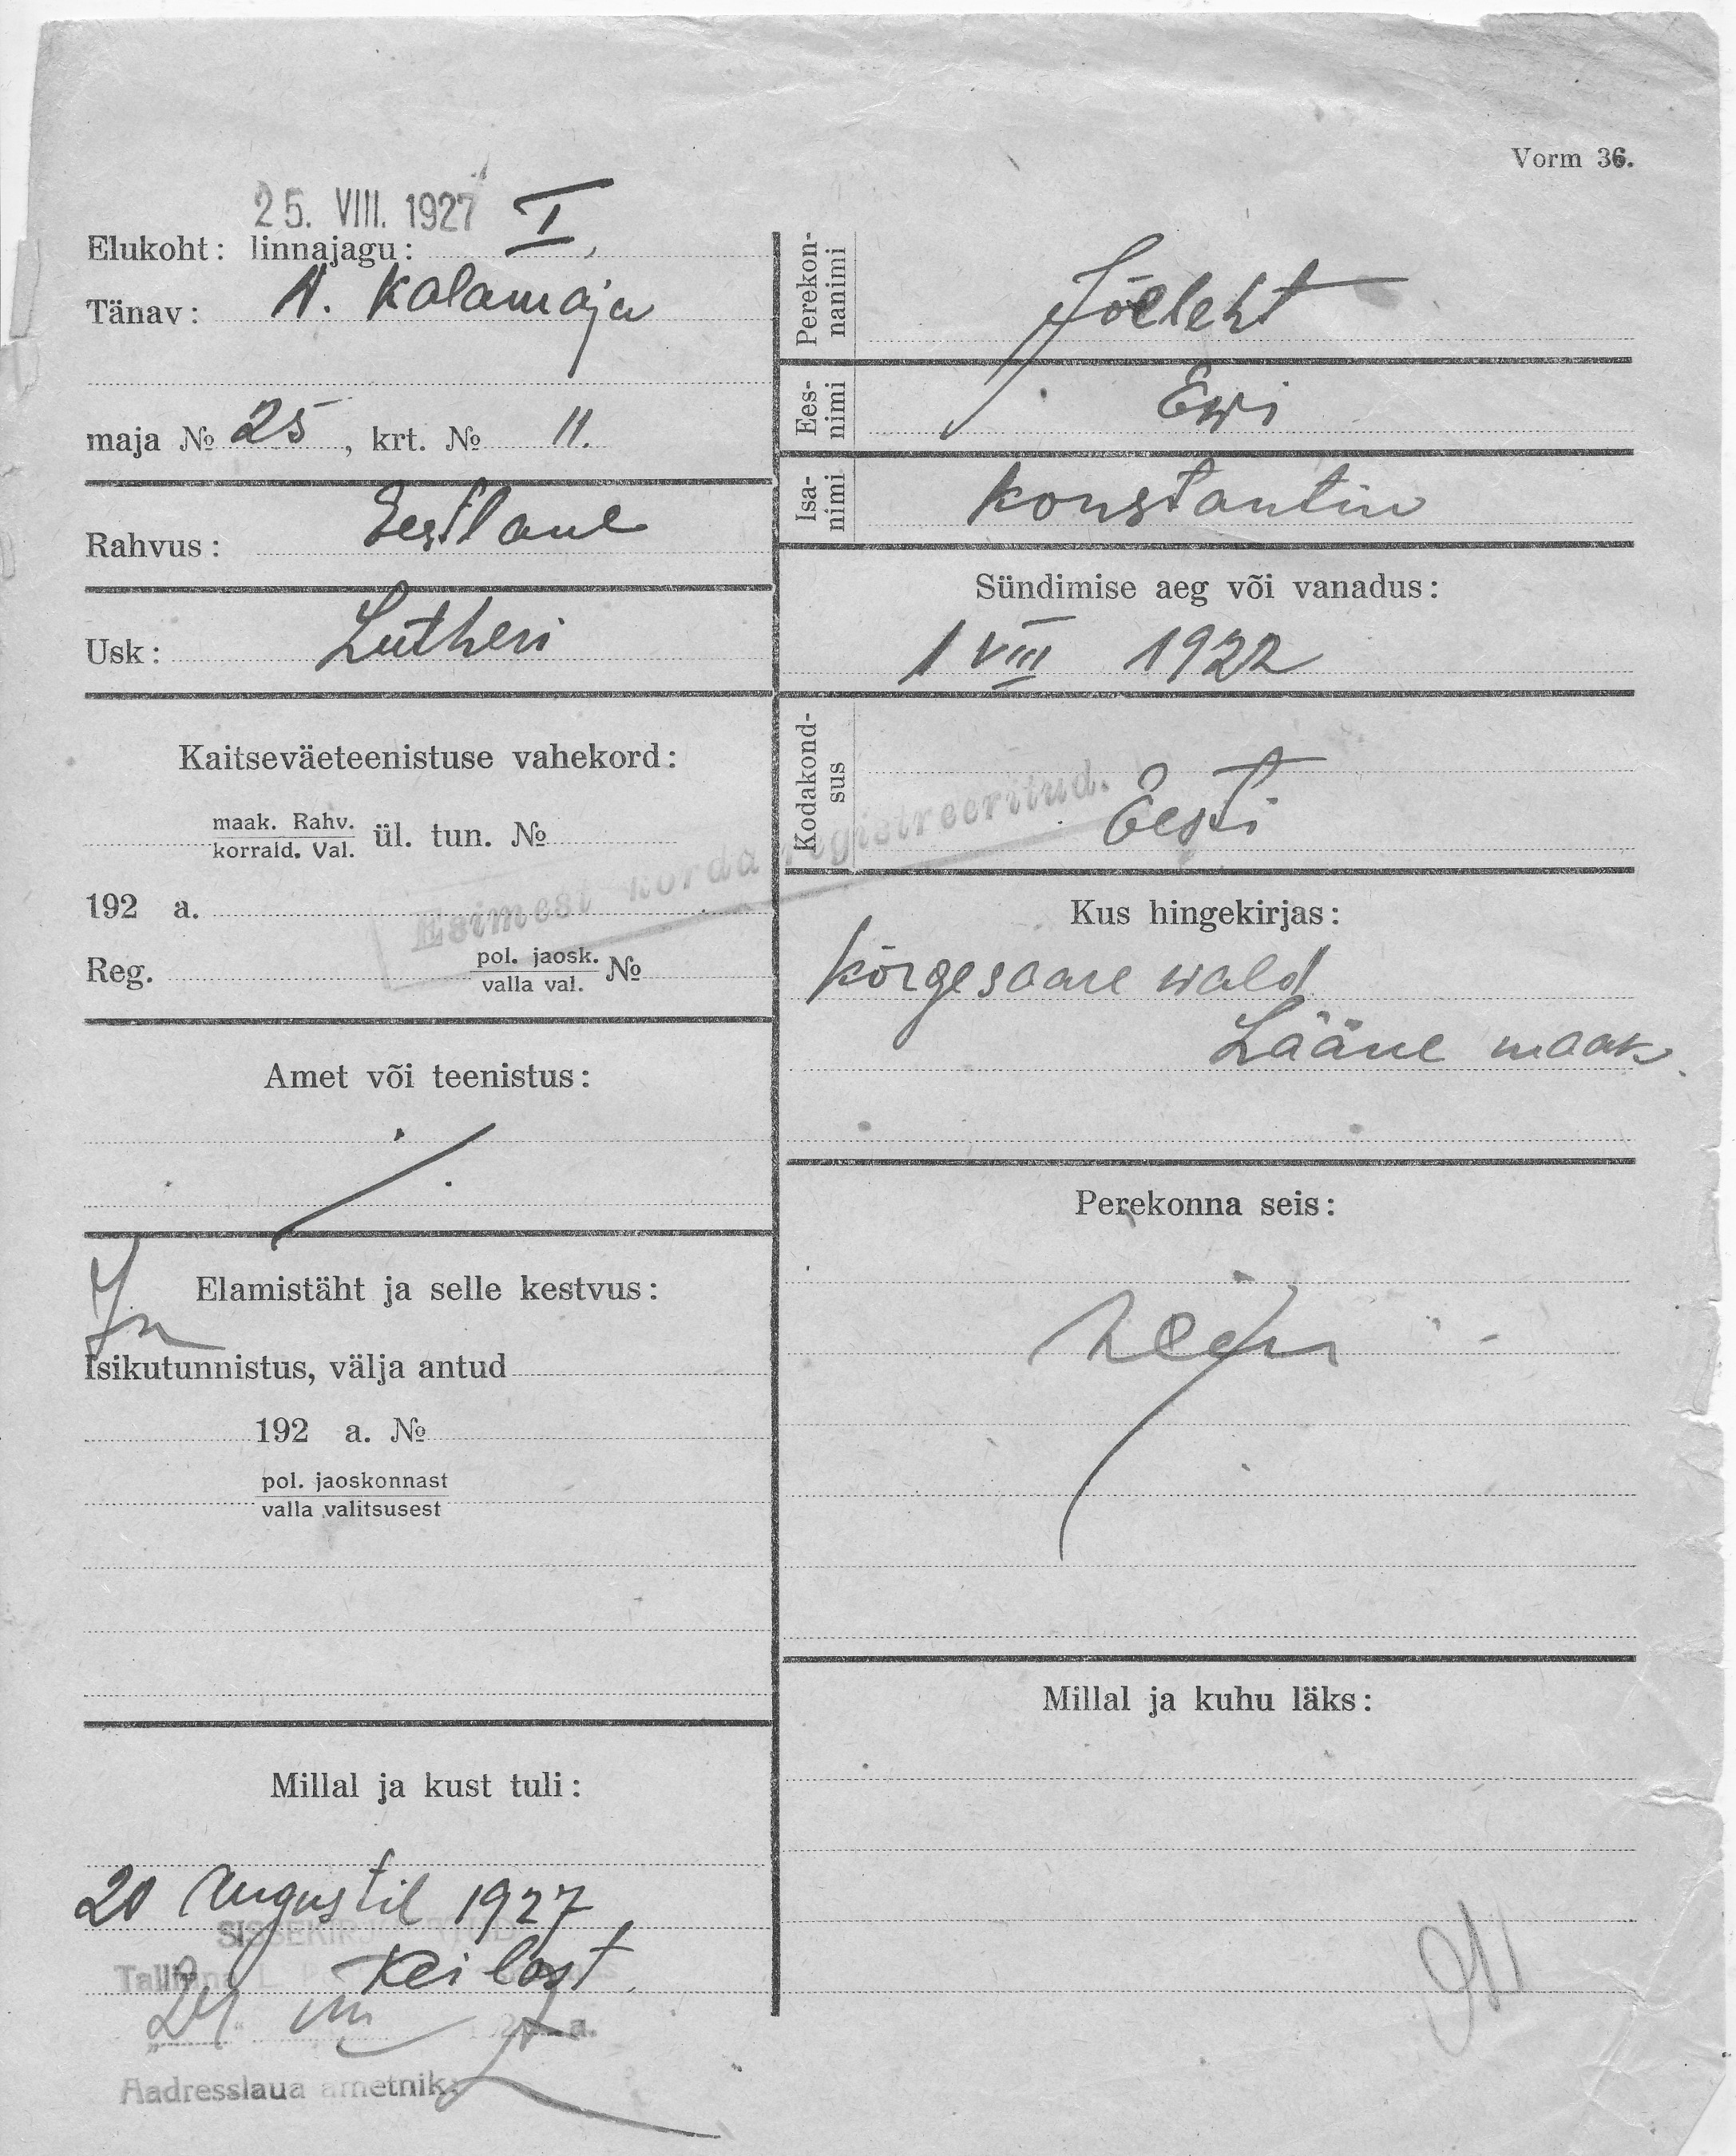 Vorm 36.
25. VIII. 1927
Elukoht: linnajagu: I,
Tänav: A. Kalamaja
maja № 25, krt. № 11.
Rahvus: Eestlane
Usk: Lutheri
Kaitseväeteenistuse vahekord:
maak. Rahv.
korrald. Val. ül. tun. №
192 a.
Reg. pol. jaosk. №
valla val.
Esimest korda registreeritud.
Amet või teenistus:
Elamistäht ja selle kestvus:
Isikutunnistus, välja antud
192 a. №
pol. jaoskonnast
valla valitsusest
Millal ja kust tuli:
20 Augustil 1927
Keilast
Tallinna
24 VIII a.
Aadresslaua ametnik:
Perekonnanimi
Jõeleht
Eesnimi
Ewi
Isanimi
Konstantin
Sündimise aeg või vanadus:
1 VIII 1922
Kodakondsus
Eesti
Kus hingekirjas:
Kõrgesaare wald
Lääne maak.
Perekonna seis:
Millal ja kuhu läks: